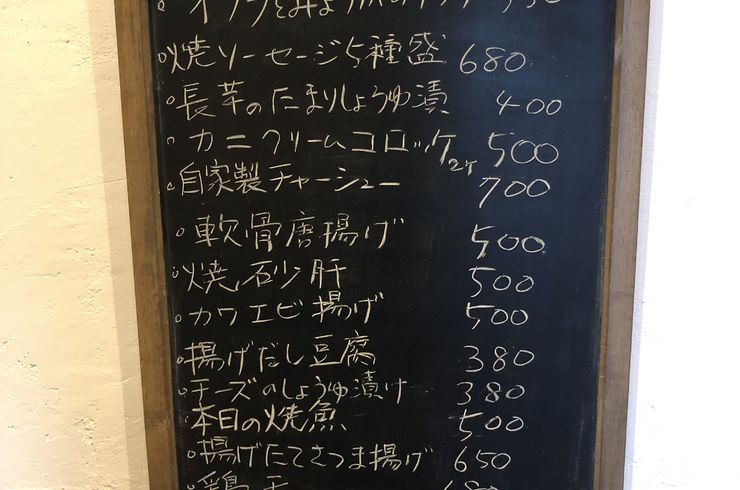 焼ソーセージ5種盛 680
長芋のたまりしょうゆ漬 400
カニクリームコロッケ2ヶ 500
自家製チャーシュー 700
軟骨唐揚げ 500
焼砂肝 500
カワエビ揚げ 500
揚げだし豆腐 380
チーズのしょうゆ漬け 380
本日の焼魚 500
揚げたてさつま揚げ 650
鶏天